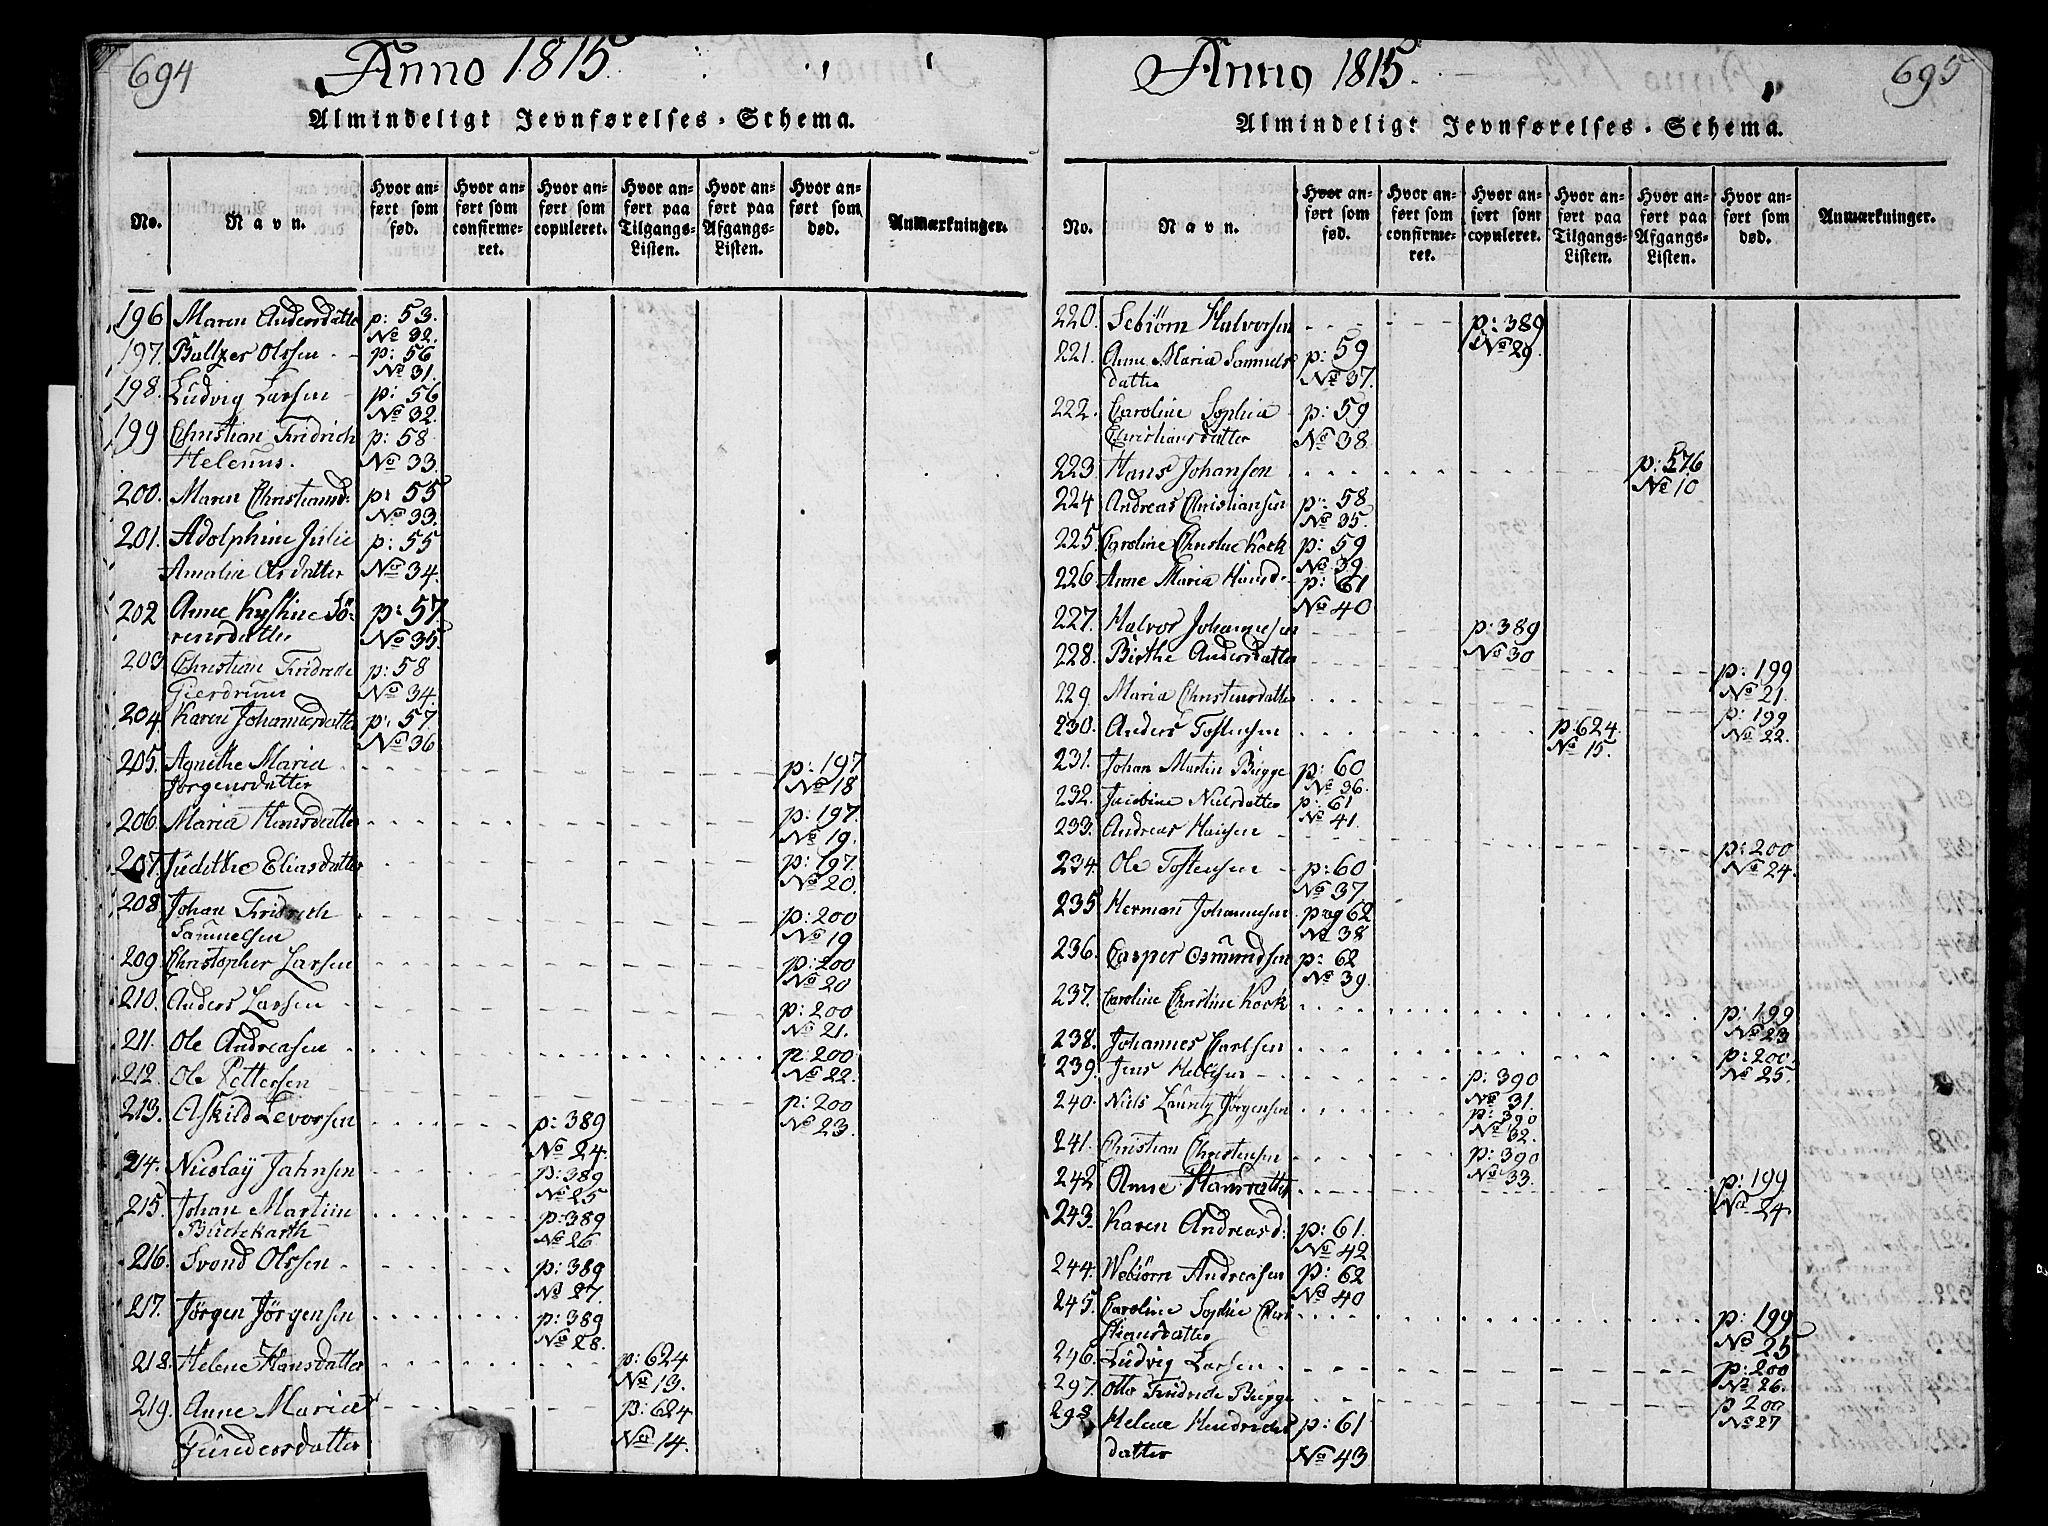 694
Anno 1815.
Almindeligt Jevnførelses-Schema.
No. Navn. Hvor anført som fød. Hvor anført som confirmeret. Hvor anført som copuleret. Hvor anført paa Tilgangs-Listen. Hvor anført paa Afgangs-Listen. Hvor anført som død. Anmærkninger.
196 Maren Andersdatter p: 53.
No 32.
197. Baltzer Olssen - - p: 56
No 31.
198. Ludvig Larsen - p: 56
No 32.
199 Christian Fridrich p: 58
Helenus. No 33.
200. Maren Christiansd: p: 55
No 33.
201. Adolphine Julie p: 55
Amalie Olsdatter No 34.
202 Anne Kystine Sö- p: 57.
rensdatter No 35.
203 Christian Fridrich p: 58
Gierdrum No 34.
204. Karen Johannesdatter p: 57.
No 36
205. Agnethe Maria p: 197
Jörgensdatter No 18
206. Maria Hansdatter p: 197.
No 19.
207. Judithe Eliasdatter p: 197.
No 20.
208 Johan Fridrich p: 200
Samuelsen No 19
209 Christopher Larsen p: 200
No 20
210. Anders Larsen p: 200
No 21.
211. Ole Andreasen p: 200
No 22.
212. Ole Pettersen p: 200
No 23.
213. Askild Levorsen p: 389
No 24.
214. Nicolaÿ Jahnsen p: 389
No 25
215. Johan Martin p: 389
Buchkarth No 26
216. Svend Olssen p: 389
No 27.
217. Jørgen Jørgensen p: 389
No 28.
218. Helene Hansdatter p: 624
No 13.
219. Anne Maria p: 624
Gundersdatter No 14.
695
Anno 1815.
Almindeligt Jevnførelses-Schema.
No. Navn. Hvor anført som fød. Hvor anført som confirmeret. Hvor anført som copuleret. Hvor anført paa Tilgangs-Listen. Hvor anført paa Afgangs-Listen. Hvor anført som død. Anmærkninger.
220. Sebiörn Halvorsen p: 389
No 29.
221. Anne Maria Samuels p: 59
datter No 37.
222. Caroline Sophia p: 59
Christiansdatter No 38.
223. Hans Johansen p: 576
No 10
224 Andreas Christiansen p: 58
No 35.
225. Caroline Christine Kock p: 59
No 39
226. Anne Maria Hansd. p: 61
No 40
227. Halvor Johannesen p: 389
No 30
228. Birthe Andersdatter p: 199
No 21.
229. Maria Christensdatter p: 199
No 22.
230. Anders Tostensen p. 624.
No 15.
231. Johan Martin Bugge p: 60
No 36.
232. Jacobine Nielsdatter p: 61
No 41.
233. Andreas p: 200
No 24.
234. Ole Tostensen p: 60
No 37
235 Herman Johannesen pag 62
No 38
236. Casper Osmundsen p: 62
No 39.
237. Caroline Christine Kock p: 199
No 23
238. Johannes Carlsen p: 200.
No 25.
239. Jens p: 390
No 31.
240. Niels Lauritz Jørgensen p: 390
No 32.
241. Christian Christensen p: 390
No 33.
242 Anne Hansdatter p: 199
No 24
243. Karen Andreasd: p: 61.
No 42
244. Webiörn Andreasen p: 62
No 40
245. Caroline Sophie Chri p: 199
stiansdatter No 25
246. Ludvig Larsen p: 200
No 26.
297. Otto Fridrich Bugge p 200
No 27
298 Helene Hendrichs p: 61
datter No 43